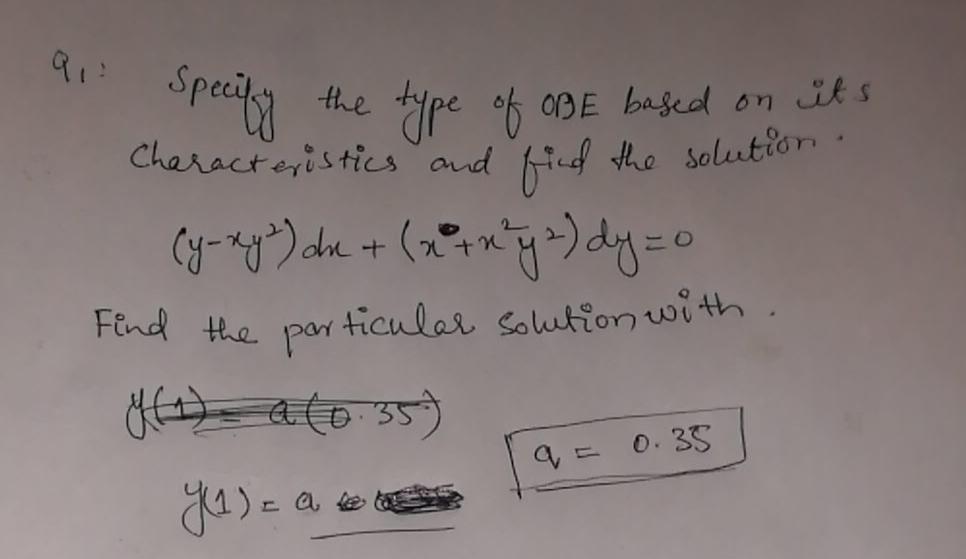 Q1: Specify the type of ODE based on its
Characteristics and find the solution.
(y-xy²)dx + (x+x²y²)dy=0
Find the particular solution with.
y(1) = a(0.35)
a = 0.35
y(1) = a